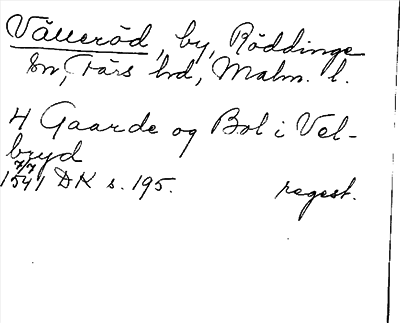 Vålleröd, by, Röddinge
sn, Färs hd, Malm. l.
4 Gaarde og Bol i Vel-
bryd
7/7
1541 DK s. 195. regest.